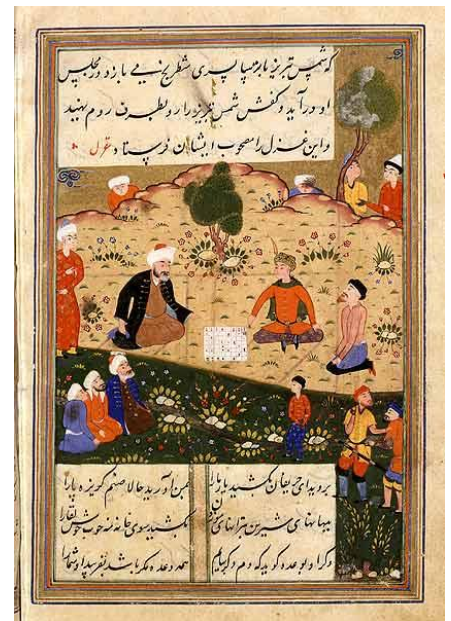 که شمس تبریز با ترسا پسری شطرنج می بازد در مجلس
او در آید و کفش شمس تبریز را رو بطرف روم نهید
و این غزل را مصحوب ایشان فرستاد غزل
بروید ای حریفان بکشید یار ما را بمن آورید حالا صنم گریزه پا را
ببهانهای شیرین بترانهای بکشید سوی خانه مه خوب خوش لقا را
وگر او بوعده گوید که دم دگر بیایم همه وعده مکر باشد بفریبد او شما را